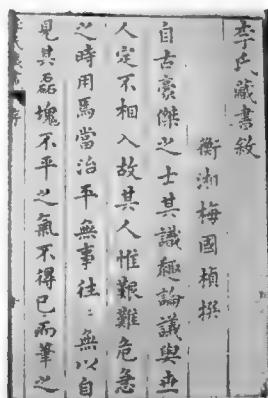 李氏藏書敘
衡湘梅國楨撰
自古豪傑之士其識趣論議與世
人定不相入故其人惟艱難危急
之時用焉當治平無事往〻無以自
見其磊塊不平之氣不得已而筆之